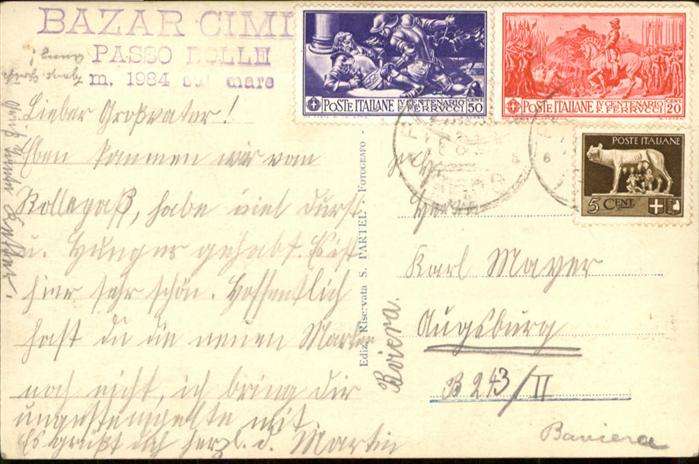 BAZAR CIMI
PASSO ROLLE
m. 1984 sul mare
Lieber Großvater!
Eben kommen wir vom
Rollepaß, habe viel Durst
u. Hunger gehabt. Es ist
hier sehr schön. Hoffentlich
hast du die neuen Marken
noch nicht, ich bring dir
ungestempelte mit
Es grüßt dich herzl. d. Martin
Ediz. Riservata S. PARTEL - Fotografo
POSTE ITALIANE IV CENTENARIO FERRUCCI 50
POSTE ITALIANE IV CENTENARIO FERRUCCI 20
POSTE ITALIANE
5 CENT.
Herrn
Karl Mayer
Augsburg
B 243/II
Baviera
Baviera